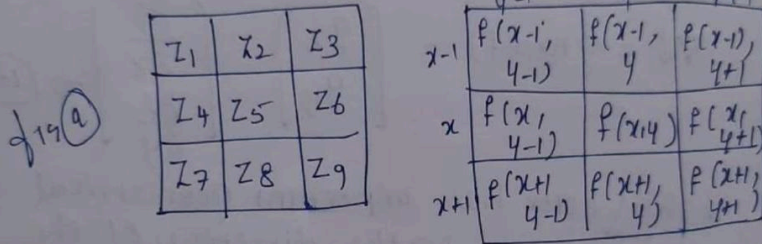 fig (a)
Z1 Z2 Z3
Z4 Z5 Z6
Z7 Z8 Z9
x-1 f(x-1, y-1) f(x-1, y f(x-1), y+1
x f(x, y-1) f(x,y) f(x, y+1)
x+1 f(x+1 y-1) f(x+1, y) f(x+1, y+1